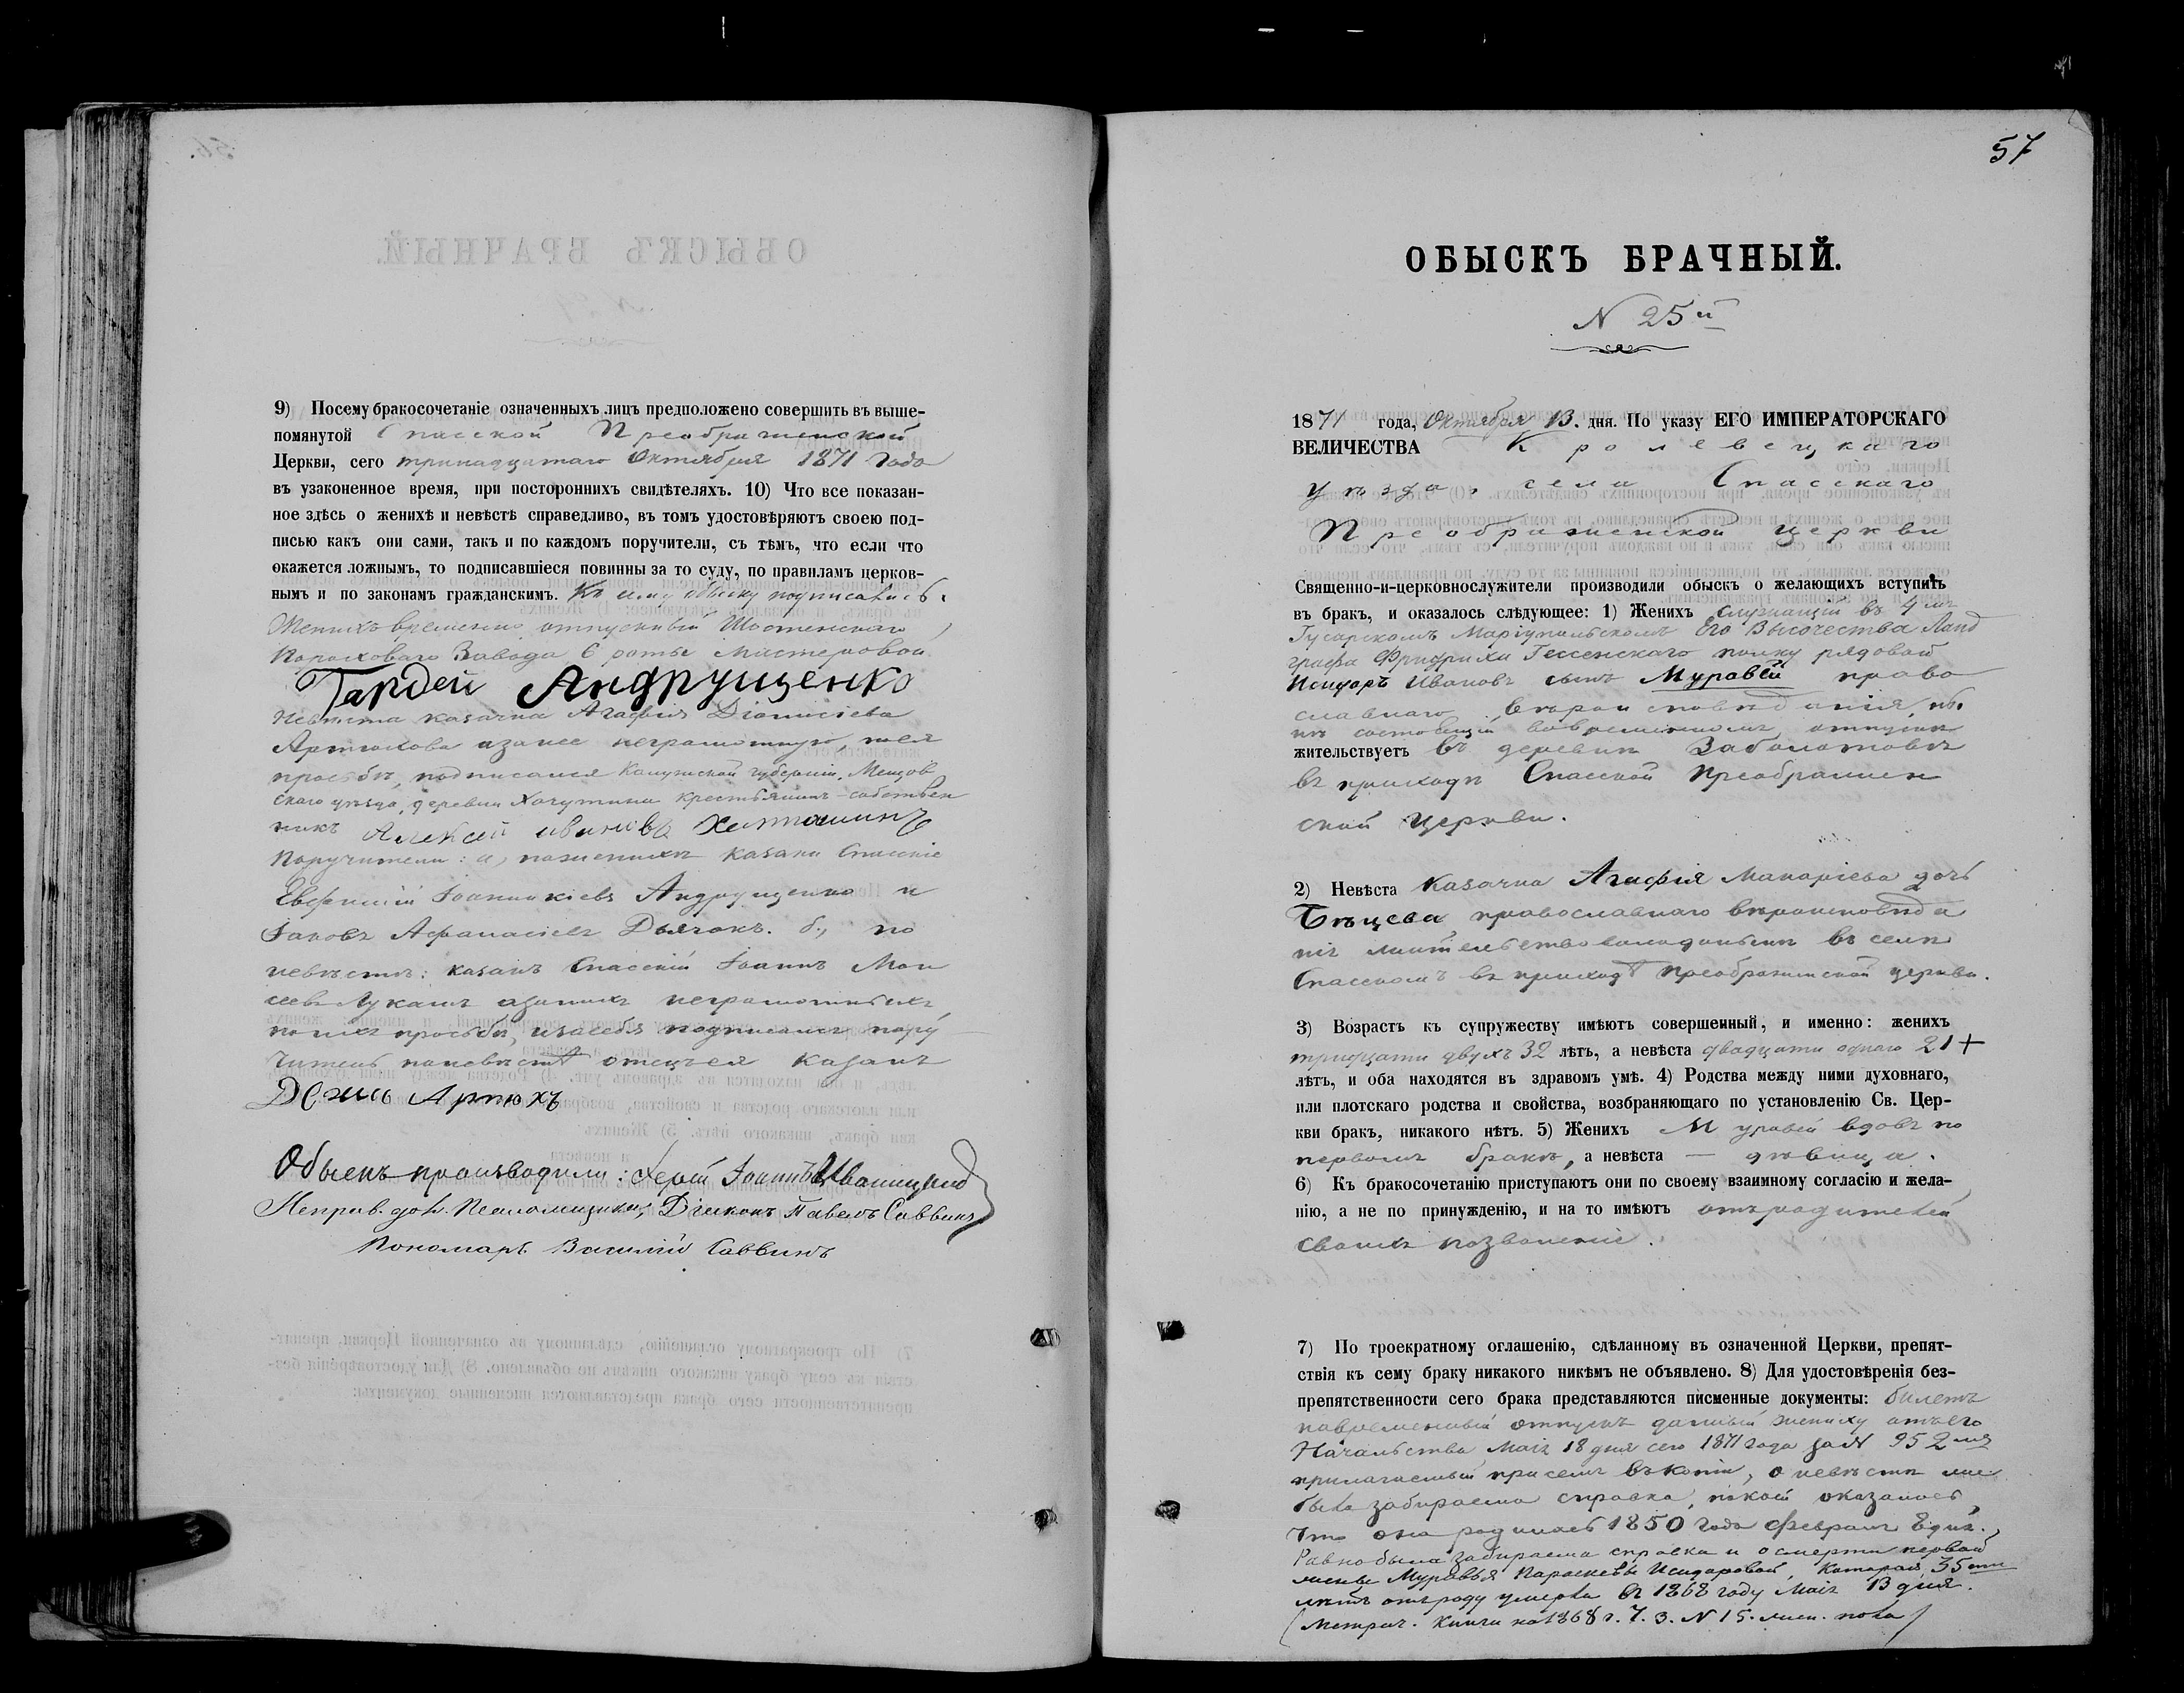 9) Посему бракосочетаніе означенныхъ лицъ предположено совершить въ выше-
помянутой Спасской Преображенской
Церкви, сего тринадцатаго Октября 1871 года
въ узаконенное время, при постороннихъ свидѣтеляхъ. 10) Что все показан-
ное здѣсь о женихѣ и невѣстѣ справедливо, въ томъ удостовѣряютъ своею под-
писью какъ они сами, такъ и по каждомъ поручители, съ тѣмъ, что если что
окажется ложнымъ, то подписавшіеся повинны за то суду, по правиламъ церков-
нымъ и по законамъ гражданскимъ. Къ сему обыску подписались:
Женихъ временно отпускный Шостенскаго
Пороховаго Завода 6 роты Мастеровой
Гардей Андрущенко
Невѣста казачка Агафія Діонисіева
Артюхова азанее неграмотную, поея
прозьбѣ, подписался Калужской губерніи, Мещов
скаго уѣзда, деревни Хотутина крестьянинъ-собствен
никъ Алексей Ивановъ
Поручители: а, поженихѣ казаки Спасскіе
Евфимій Іоанникіевъ Андрущенко и
Іаковъ Афанасіевъ Дьячокъ. б., по
невѣстѣ: казакъ Спасскій Іоаннъ Мои
сеевъ Лукашъ азанихъ неграмотныхъ
поихъ прозьбѣ, изасебя подписался пору
читель поневѣстѣ отецъея казакъ
Денис Артюхъ
Обыскъ производили: Іерей Іоаннъ Иваницкій
Исправ. дол. Псаломщика, Діаконъ Павелъ Саввинъ
Пономарь Василій Саввинъ
57
ОБЫСКЪ БРАЧНЫЙ.
N 25й
1871 года, Октября 13. дня. По указу ЕГО ИМПЕРАТОРСКАГО
ВЕЛИЧЕСТВА Кролевецкаго
уѣзда, села Спасскаго
Преображенской церкви
Священно-и-церковнослужители производили обыскъ о желающихъ вступить
въ бракъ, и оказалось слѣдующее: 1) Женихъ служащій въ 4мъ
Гусарскомъ Маріупольскомъ Его Высочества Ланд
графа Фридриха Гессенскаго полку рядовой
Исидоръ Ивановъ сынъ Муравей право
славнаго вѣроисповѣданія,
состоящій вовременномъ отпуске
жительствуетъ въ деревни Заболотовѣ
въ приходѣ Спасской Преображен
ской церкви.
2) Невѣста казачка Агафія Макаріева дочь
Бѣцева православнаго вѣроисповѣда
нія жительство въ селѣ
Спасскомъ въ приходѣ Преображенской церкви.
3) Возрастъ къ супружеству имѣютъ совершенный, и именно: женихъ
тридцати двухъ 32 лѣтъ, а невѣста двадцати одного 21 +
лѣтъ, и оба находятся въ здравомъ умѣ. 4) Родства между ними духовнаго,
или плотскаго родства и свойства, возбраняющаго по установленію Св. Цер-
кви бракъ, никакого нѣтъ. 5) Женихъ Муравей вдовъ по
первомъ бракѣ, а невѣста — дѣвица.
6) Къ бракосочетанію приступаютъ они по своему взаимному согласію и жела-
нію, а не по принужденію, и на то имѣютъ отъродителей
своихъ позволеніе.
7) По троекратному оглашенію, сдѣланному въ означенной Церкви, препят-
ствія къ сему браку никакого никѣмъ не объявлено. 8) Для удостовѣренія без-
препятственности сего брака представляются писменные документы: билетъ
повременный отпускъ данный жениху отъего
Начальства Маія 18 дня сего 1871 года заN 952мъ
прилагаемый присемъ въкопіи, о невѣсте же
была забираема справка, покой оказалось,
что она родилась 1850 года февраля 8 дня.
Равнобыла забираема справка и осмерти первой
жены Муравья Параскевы Исидоровой, которая 35ти
лѣтъ отъроду умерла въ 1868 году Маія 13 дня.
(Метрич. книги на1868 г. Ч. 3. N 15. жен. пола)